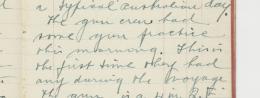 a typical australian day.
The gun crew had
some gun practice
this morning. This is
the first time they had
any during the voyage
The gun is a 4 in